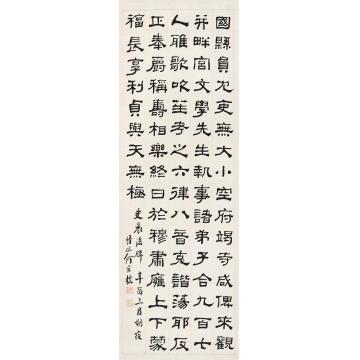 國縣員冗吏無大小空府竭寺咸俾來觀
并畔宮文學先生執事諸弟子合九百七
人雅歌吹笙考之六律八音克諧蕩邪反
正奉爵稱壽相樂終日於穆肅雍上下蒙
福長享利貞與天無極
史晨後碑辛酉